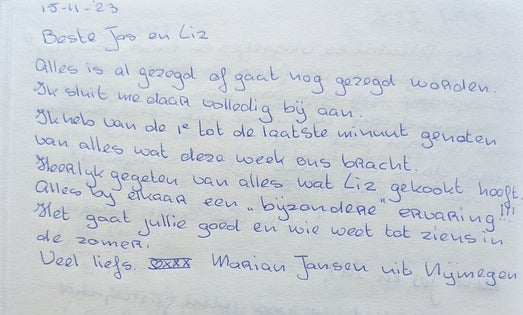 15-11-'23
Beste Jos en Liz
Alles is al gezegd of gaat nog gezegd worden.
Ik sluit me daar volledig bij aan.
Ik heb van de 1e tot de laatste minuut genoten
van alles wat deze week ons bracht.
Heerlyk gegeten van alles wat Liz gekookt hooft.
Alles by elkaar een „bijzondere" ervaring!!!
Het gaat jullie goed en wie weet tot ziens in
de zomer.
Veel liefs. xxx Marian Jansen uit Nijmegen